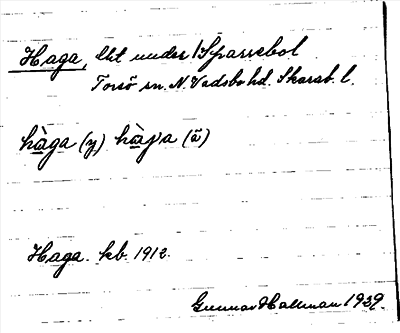 Haga, lht under Spassebol
Torsö sn. N. Vadsbo hd. Skarab. l.
hàga (y) hàga (ä)
Haga. kb. 1912.
Gunnar Hallman 1939.